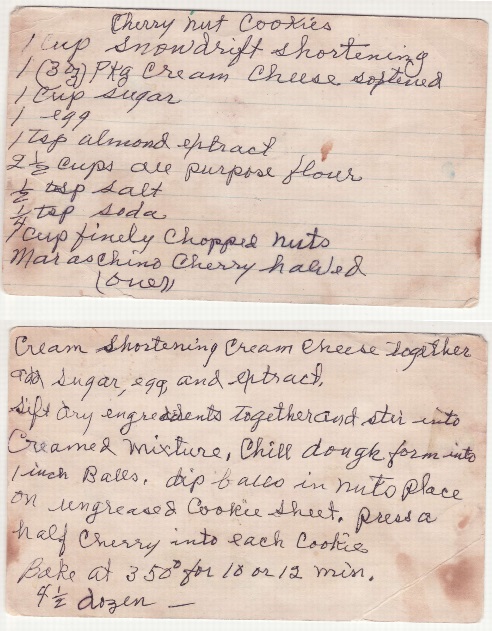 Cherry nut Cookies
1 Cup snowdrift shortening
1 (3 oz) Pkg Cream Cheese softened
1 Cup sugar
1 egg
1 tsp almond extract
2 ½ cups all purpose flour
½ tsp salt
¼ tsp soda
1 cup finely chopped nuts
Maraschino Cherry halved
(over)
Cream shortening Cream cheese together
add sugar, egg, and extract.
Sift dry engredients together and stir into
Creamed mixture. Chill dough form into
1 inch Balls. dip balls in nuts place
on ungreased Cookie sheet. press a
half Cherry into each Cookie
Bake at 350° for 10 or 12 min.
4 ½ dozen —